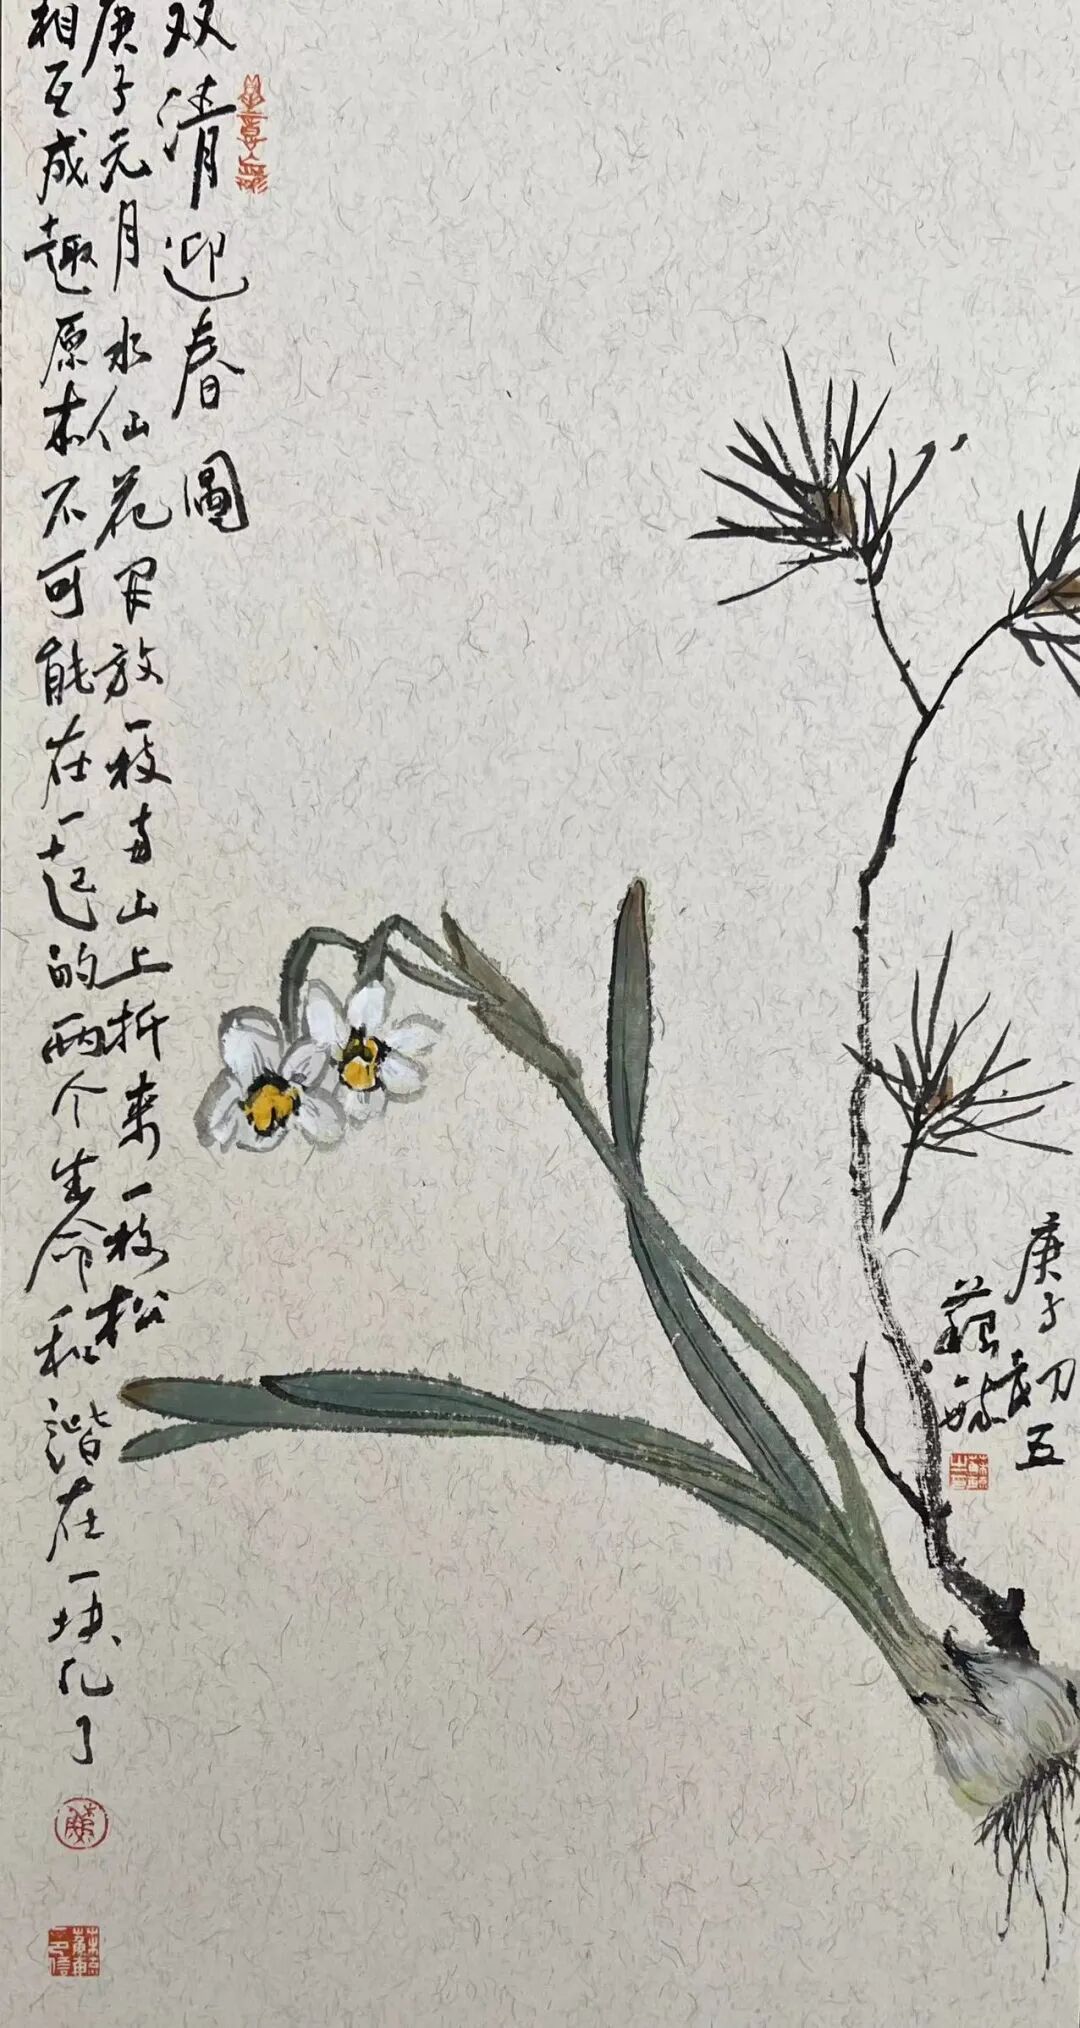 双清迎春圖
庚子元月水仙花放一枝与山上折来一枝松
相互成趣原本不可能在一起的两个生命和谐在一块儿了
庚子初五